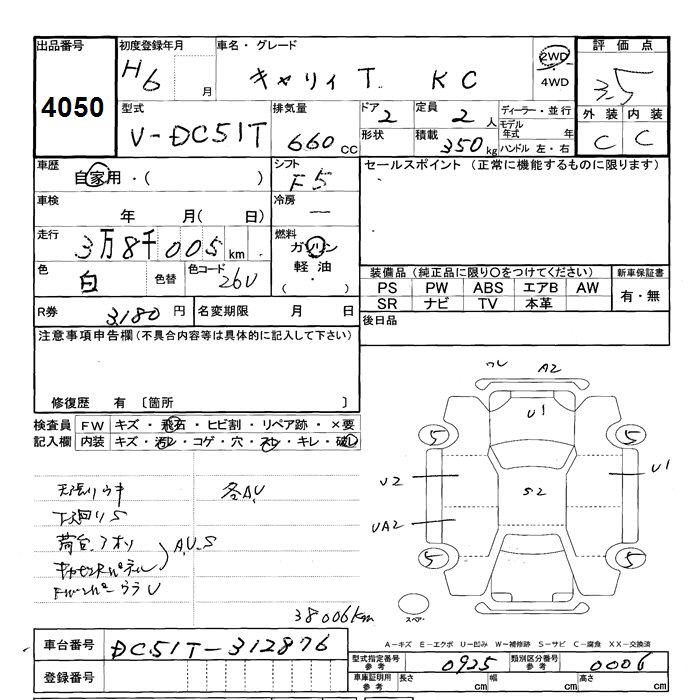 出品番号
4050
初度登録年月
H6 月
車名・グレード
キャリィ T KC
2WD
4WD
評価点
3.5
型式
V-DC51T
排気量
660 cc
ドア
2
定員
2 人
ディーラー・並行
モデル年式 年
ハンドル 左・右
形状
積載
350 kg
外装 内装
C C
車歴
自家用・( )
シフト
F5
セールスポイント (正常に機能するものに限ります)
車検
年 月( 日)
冷房
—
走行
3万8千005 km
燃料
ガソリン
軽油
( ・ )
色
白
色替
色コード
26U
装備品 (純正品に限り〇をつけてください)
新車保証書
PS PW ABS エアB AW
SR ナビ TV 本革
有・無
R券
3180 円
名変期限 月 日
後日品
注意事項申告欄 (不具合内容等は具体的に記入して下さい)
修復歴 有 〔箇所 〕
検査員記入欄
FW キズ・飛石・ヒビ割・リペア跡・×要
内装 キズ・汚レ・コゲ・穴・スレ・キレ・破レ
天張リウキ
各A,U
下廻りS
荷台、アオリ
A,U,S
キャビンバックパネル
FWパネルウラU
38006km
ウレ A2
U1
5 5
U2
U1
S2
UA2
5 5
スペア
車台番号
DC51T-312876
登録番号
A-キズ E-エクボ U-凹み W-補修跡 S-サビ C-腐食 XX-交換済
型式指定番号 参考
0925
類別区分番号 参考
0006
車庫証明用 参考
長さ cm
幅 cm
高さ cm